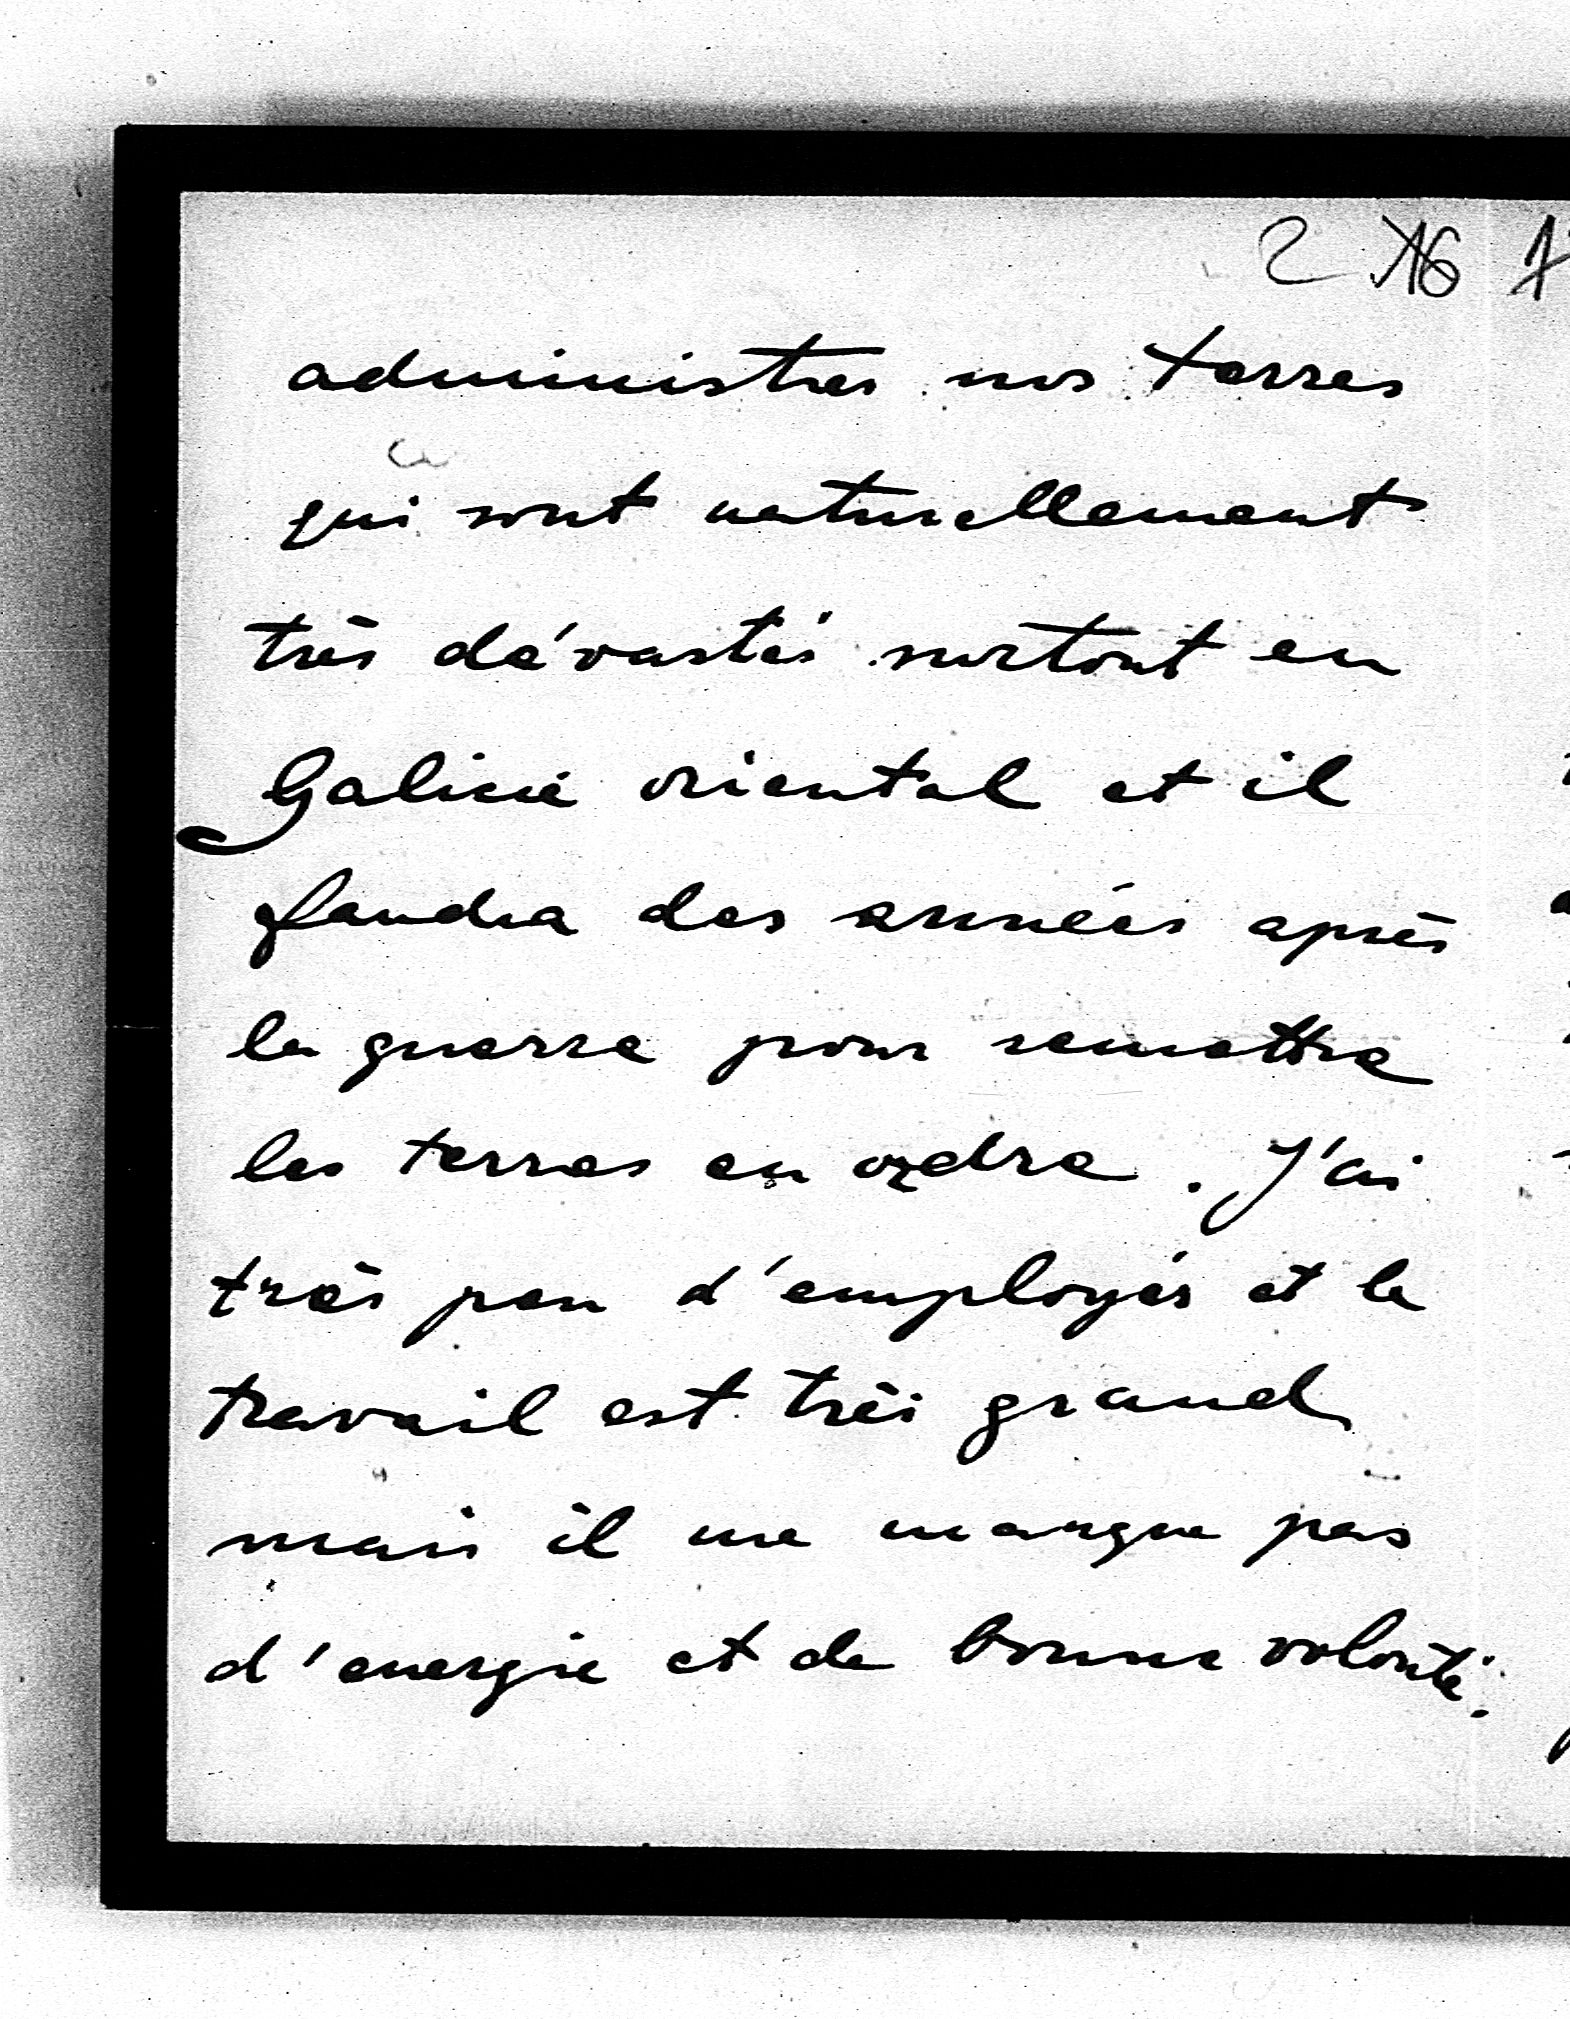 2 16
administrer nos terres
qui sont naturellement
très dévastés surtout en
Galicie oriental et il
faudra des années après
la guerre pour remettre
les terres en ordre. J'ai
très peu d'employés et le
travail est très grand
mais il me manque pas
d'energie et de bonne volonté.